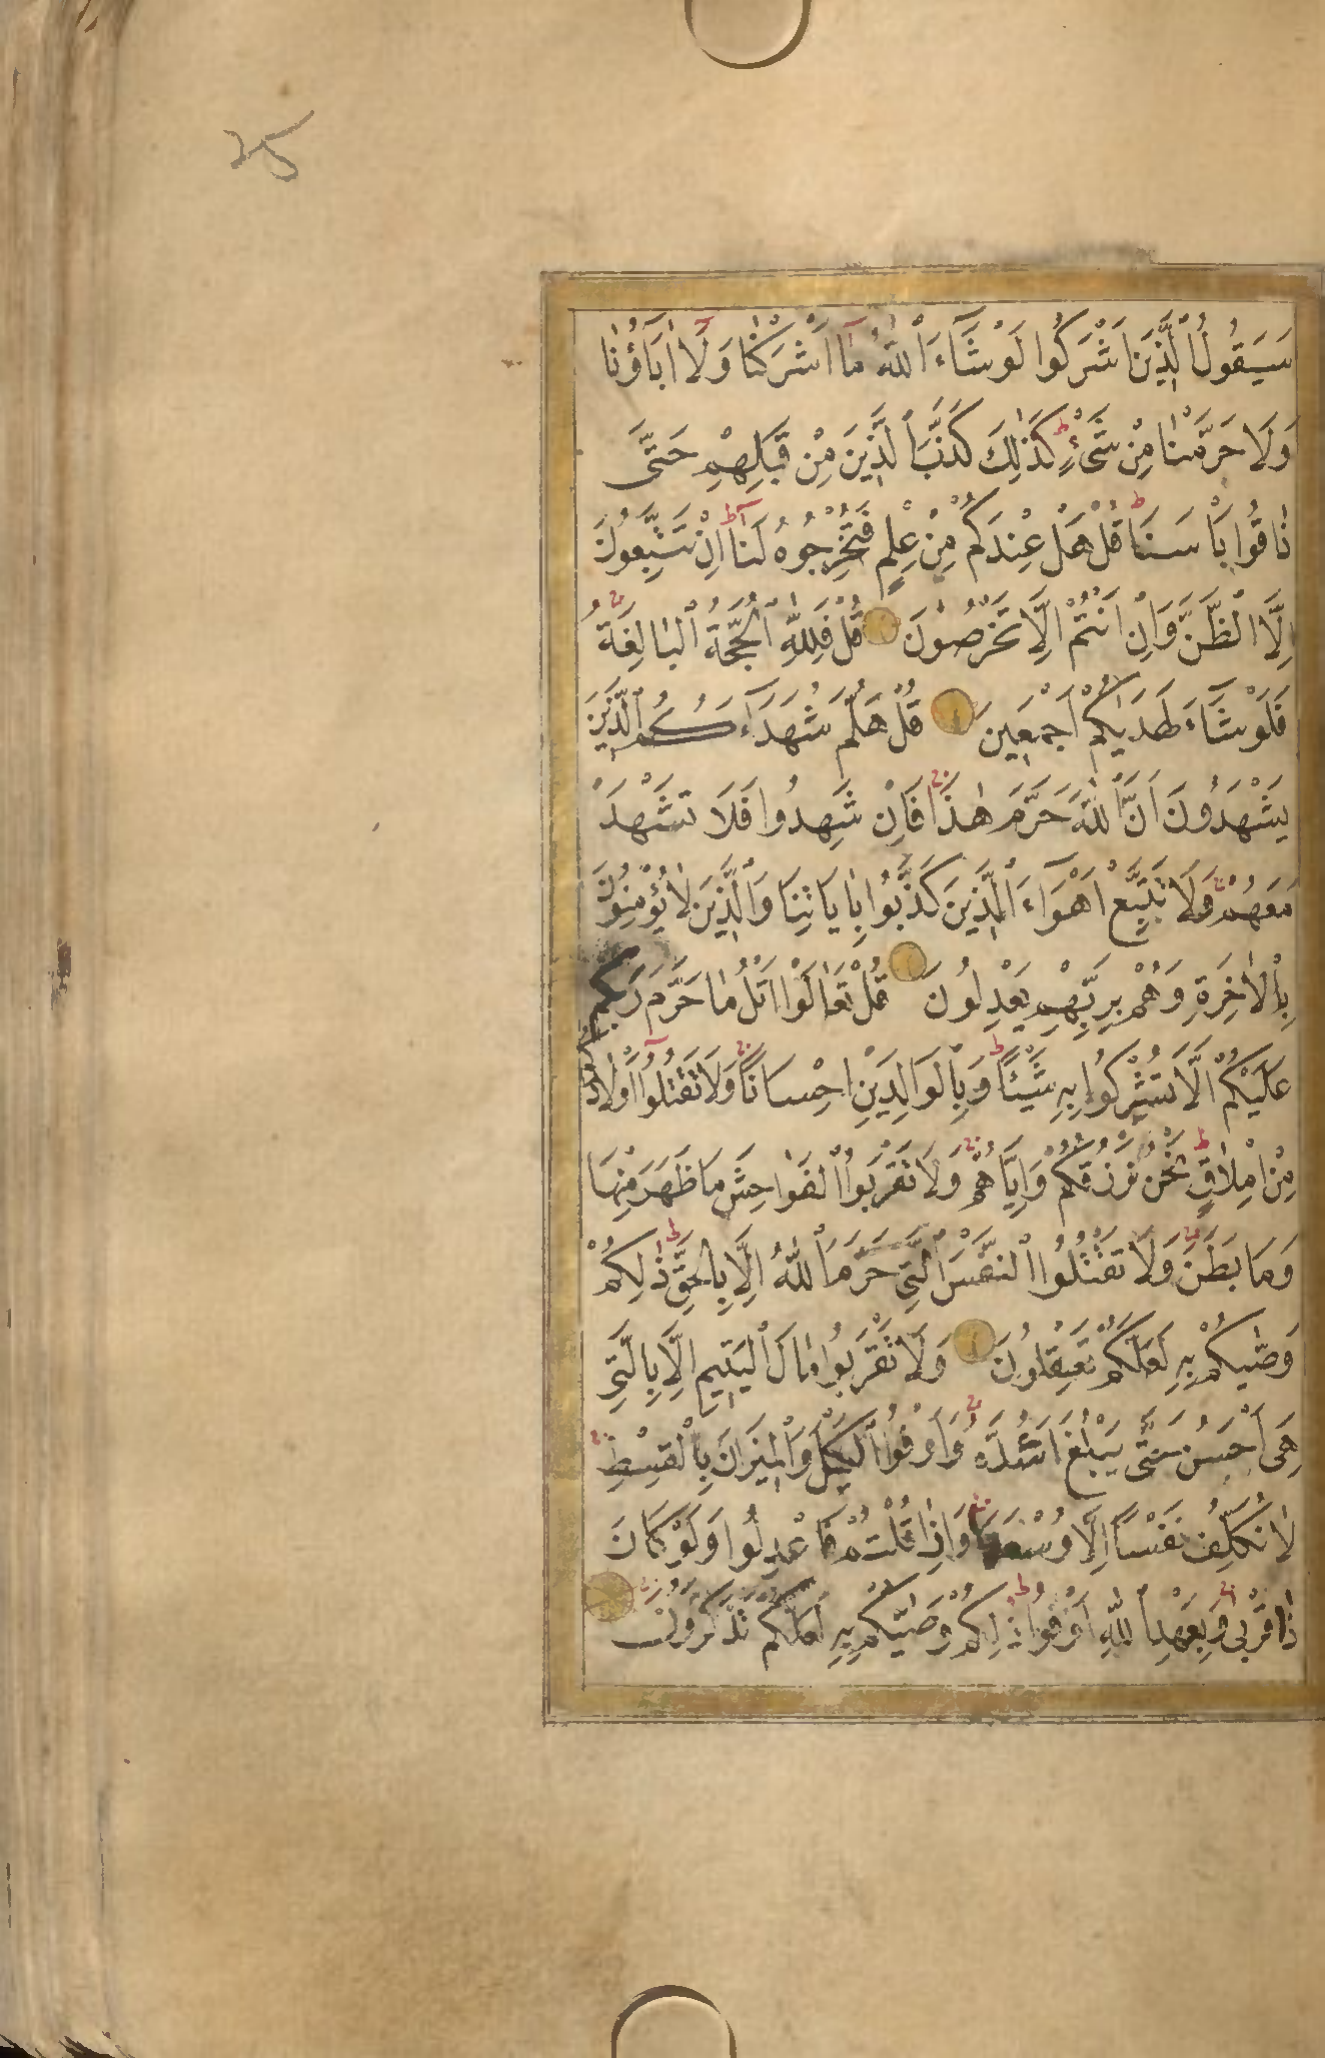 25
سَيَقُولُ ٱلَّذِينَ اَشْرَكُوا لَوْ شَآءَ ٱللّٰهُ مَآ اَشْرَكْنَا وَلَآ اٰبَآؤُنَا
وَلَا حَرَّمْنَا مِنْ شَىْءٍ ط كَذٰلِكَ كَذَّبَ ٱلَّذِينَ مِنْ قَبْلِهِمْ حَتّٰى
ذَاقُوا بَاْسَنَا ط قُلْ هَلْ عِنْدَكُمْ مِنْ عِلْمٍ فَتُخْرِجُوهُ لَنَا ط اِنْ تَتَّبِعُونَ
اِلَّا ٱلظَّنَّ وَاِنْ اَنْتُمْ اِلَّا تَخْرُصُونَ قُلْ فَلِلّٰهِ ٱلْحُجَّةُ ٱلْبَالِغَةُ
فَلَوْ شَآءَ لَهَدٰيكُمْ اَجْمَعِينَ قُلْ هَلُمَّ شُهَدَآءَكُمُ ٱلَّذِينَ
يَشْهَدُونَ اَنَّ ٱللّٰهَ حَرَّمَ هٰذَا فَاِنْ شَهِدُوا فَلَا تَشْهَدْ
مَعَهُمْ وَلَا تَتَّبِعْ اَهْوَآءَ ٱلَّذِينَ كَذَّبُوا بِاٰيَاتِنَا وَٱلَّذِينَ لَا يُؤْمِنُونَ
بِٱلْاٰخِرَةِ وَهُمْ بِرَبِّهِمْ يَعْدِلُونَ قُلْ تَعَالَوْا اَتْلُ مَا حَرَّمَ رَبُّكُمْ
عَلَيْكُمْ اَلَّا تُشْرِكُوا بِهِ شَيْئًا ط وَبِٱلْوَالِدَيْنِ اِحْسَانًا وَلَا تَقْتُلُوٓا اَوْلَادَكُمْ
مِنْ اِمْلَاقٍ ط نَحْنُ نَرْزُقُكُمْ وَاِيَّاهُمْ وَلَا تَقْرَبُوا ٱلْفَوَاحِشَ مَا ظَهَرَ مِنْهَا
وَمَا بَطَنَ وَلَا تَقْتُلُوا ٱلنَّفْسَ ٱلَّتِى حَرَّمَ ٱللّٰهُ اِلَّا بِٱلْحَقِّ ط ذٰلِكُمْ
وَصّٰيكُمْ بِهِ لَعَلَّكُمْ تَعْقِلُونَ وَلَا تَقْرَبُوا مَالَ ٱلْيَتِيمِ اِلَّا بِٱلَّتِى
هِىَ اَحْسَنُ حَتّٰى يَبْلُغَ اَشُدَّهُ وَاَوْفُوا ٱلْكَيْلَ وَٱلْمِيزَانَ بِٱلْقِسْطِ
لَا نُكَلِّفُ نَفْسًا اِلَّا وُسْعَهَا وَاِذَا قُلْتُمْ فَاعْدِلُوا وَلَوْ كَانَ
ذَا قُرْبٰى وَبِعَهْدِ ٱللّٰهِ اَوْفُوا ط ذٰلِكُمْ وَصّٰيكُمْ بِهِ لَعَلَّكُمْ تَذَكَّرُونَ